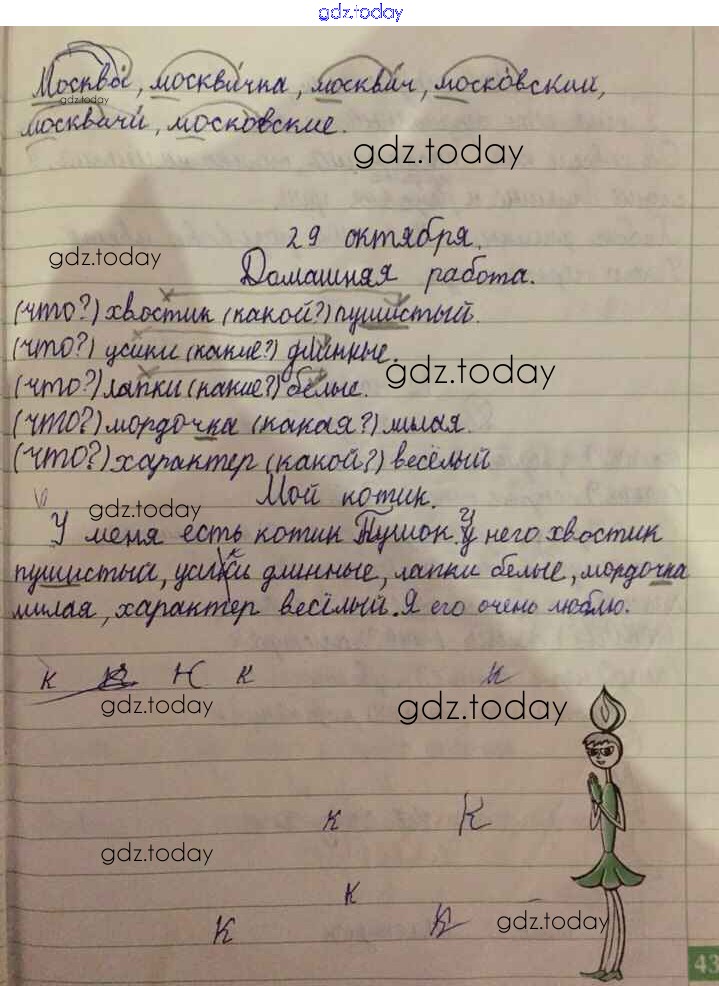 gdz.today
Москва́, москви́чка, москви́ч, моско́вский,
gdz.today
москвичи́, моско́вские.
gdz.today
29 октября.
gdz.today
Домашняя работа.
(что?) хвостик (какой?) пушистый.
(что?) усики (какие?) длинные.
(что?) лапки (какие?) белые.
gdz.today
(что?) мордочка (какая?) милая.
(что?) характер (какой?) весёлый
Мой котик.
gdz.today
У меня есть котик Пушок. У него хвостик
пушистый, усики длинные, лапки белые, мордочка
милая, характер весёлый. Я его очень люблю.
к к К к к
gdz.today gdz.today
к К
gdz.today
к
К К gdz.today
43